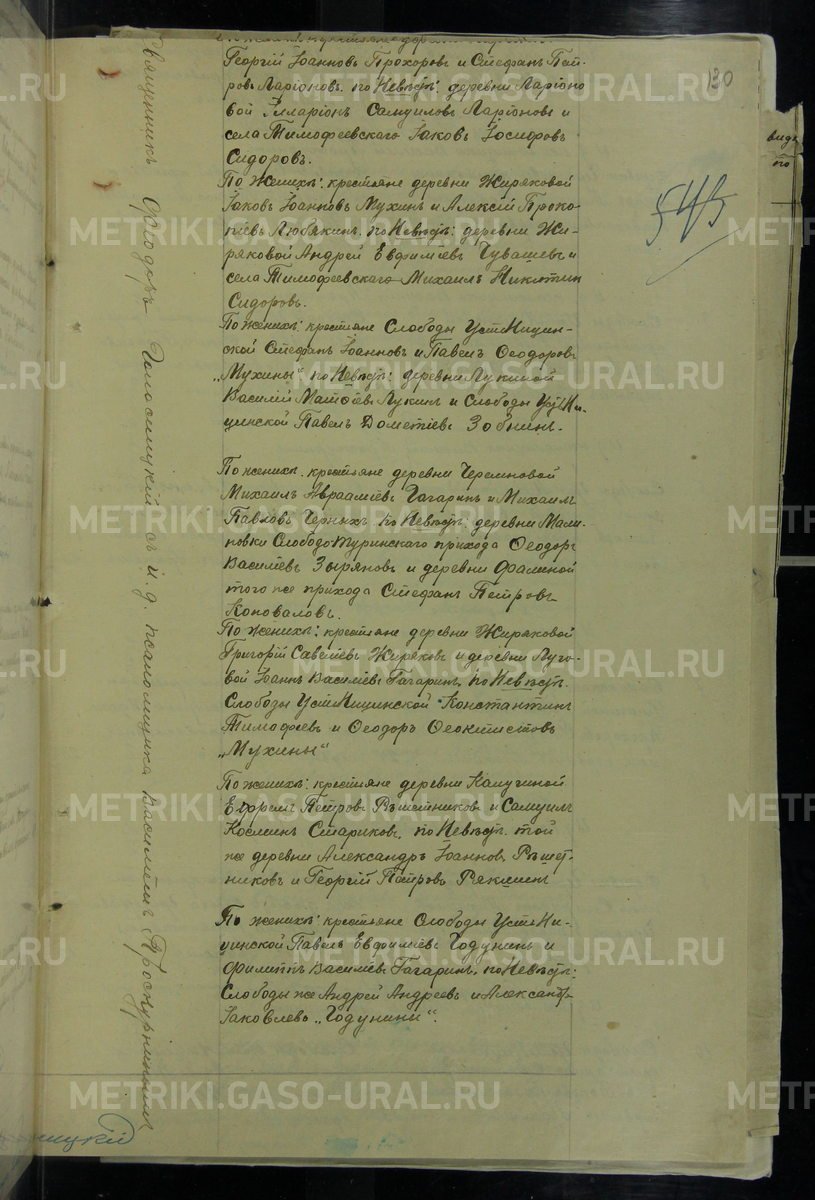 130
Георгій Іоанновъ Прохоровъ и Стефанъ Пет-
ровъ Ларіоновъ. по Невѣстѣ: деревни Ларіоно
вой Илларіонъ Самуиловъ Ларіоновъ и
села Тимофеевскаго Іаковъ Іосифовъ
Сидоровъ.
По Женихѣ: крестьяне деревни Жиряковой
Іаковъ Іоанновъ Мухинъ и Алексій Проко-
піевъ Любякинъ. по Невѣстѣ: деревни Жи-
ряковой Андрей Евфиміевъ Чувашевъ и
села Тимофеевскаго Михаилъ Никитинъ
Сидоровъ.
По женихѣ: крестьяне Слободы УстьНицин-
ской Стефанъ Іоанновъ и Павелъ Ѳеодоровъ
„Мухины“ по Невѣстѣ: деревни Лукиной
Василій Матѳіевъ Лукинъ и Слободы УстьНи-
цинской Павелъ Дометіевъ Зобнинъ.
По женихѣ. крестьяне деревни Черемновой
Михаилъ Авраамiевъ Гагаринъ и Михаилъ
Павловъ Черныхъ. по Невѣстѣ: деревни Мали-
новки СлободоТуринскаго прихода Ѳеодоръ
Василіевъ Зыряновъ и деревни Фалиной
того же прихода Стефанъ Петровъ
Коноваловъ.
По женихѣ: крестьяне деревни Жиряковой
Григорій Савеліевъ Жиряковъ и деревни Луго-
вой Іоаннъ Василіевъ Гагаринъ, по Невѣстѣ.
Слободы УстьНицинской Константинъ
Тимофеевъ и Ѳеодоръ Ѳеоктистовъ
„Мухины“
По женихѣ: крестьяне деревни Калугиной
Ефремъ Петровъ Рѣшетниковъ и Самуилъ
Косминъ Стариковъ, по Невѣстѣ. той
же деревни Александръ Іоанновъ Рѣшет-
никовъ и Георгій Петровъ Рякшинъ
По женихѣ: крестьяне Слободы УстьНи-
цинской Павелъ Евфиміевъ Годунинъ и
Филиппъ Василіевъ Гагаринъ, по Невѣстѣ:
Слободы же Андрей Андреевъ и Александръ
Іаковлевъ „Годунины“.
Священникъ Ѳеодоръ съ и. д. псаломщика Василіемъ
METRIKI.GASO-URAL.RU